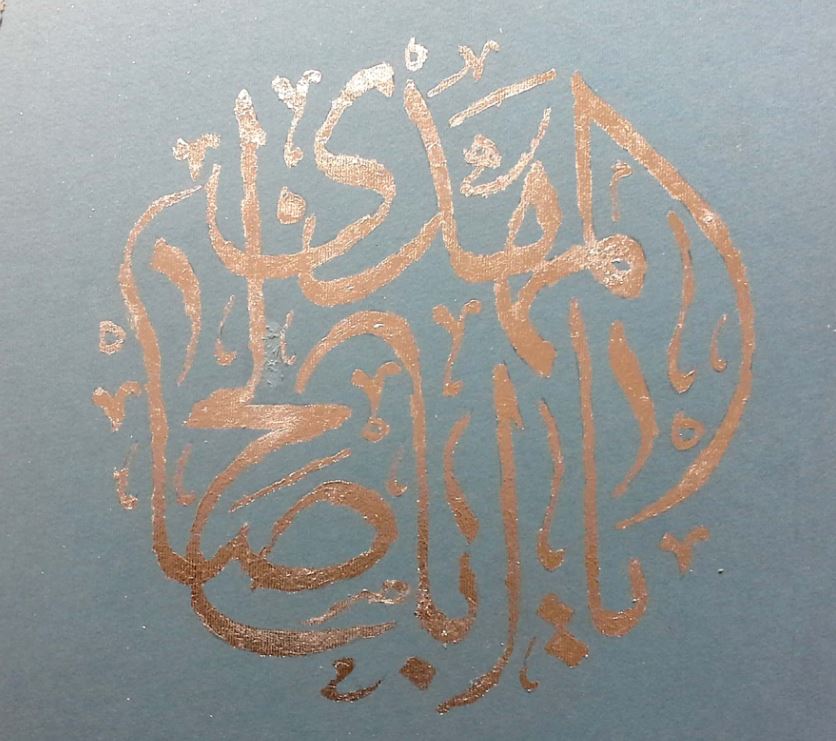 يا ابا صالح المهدى